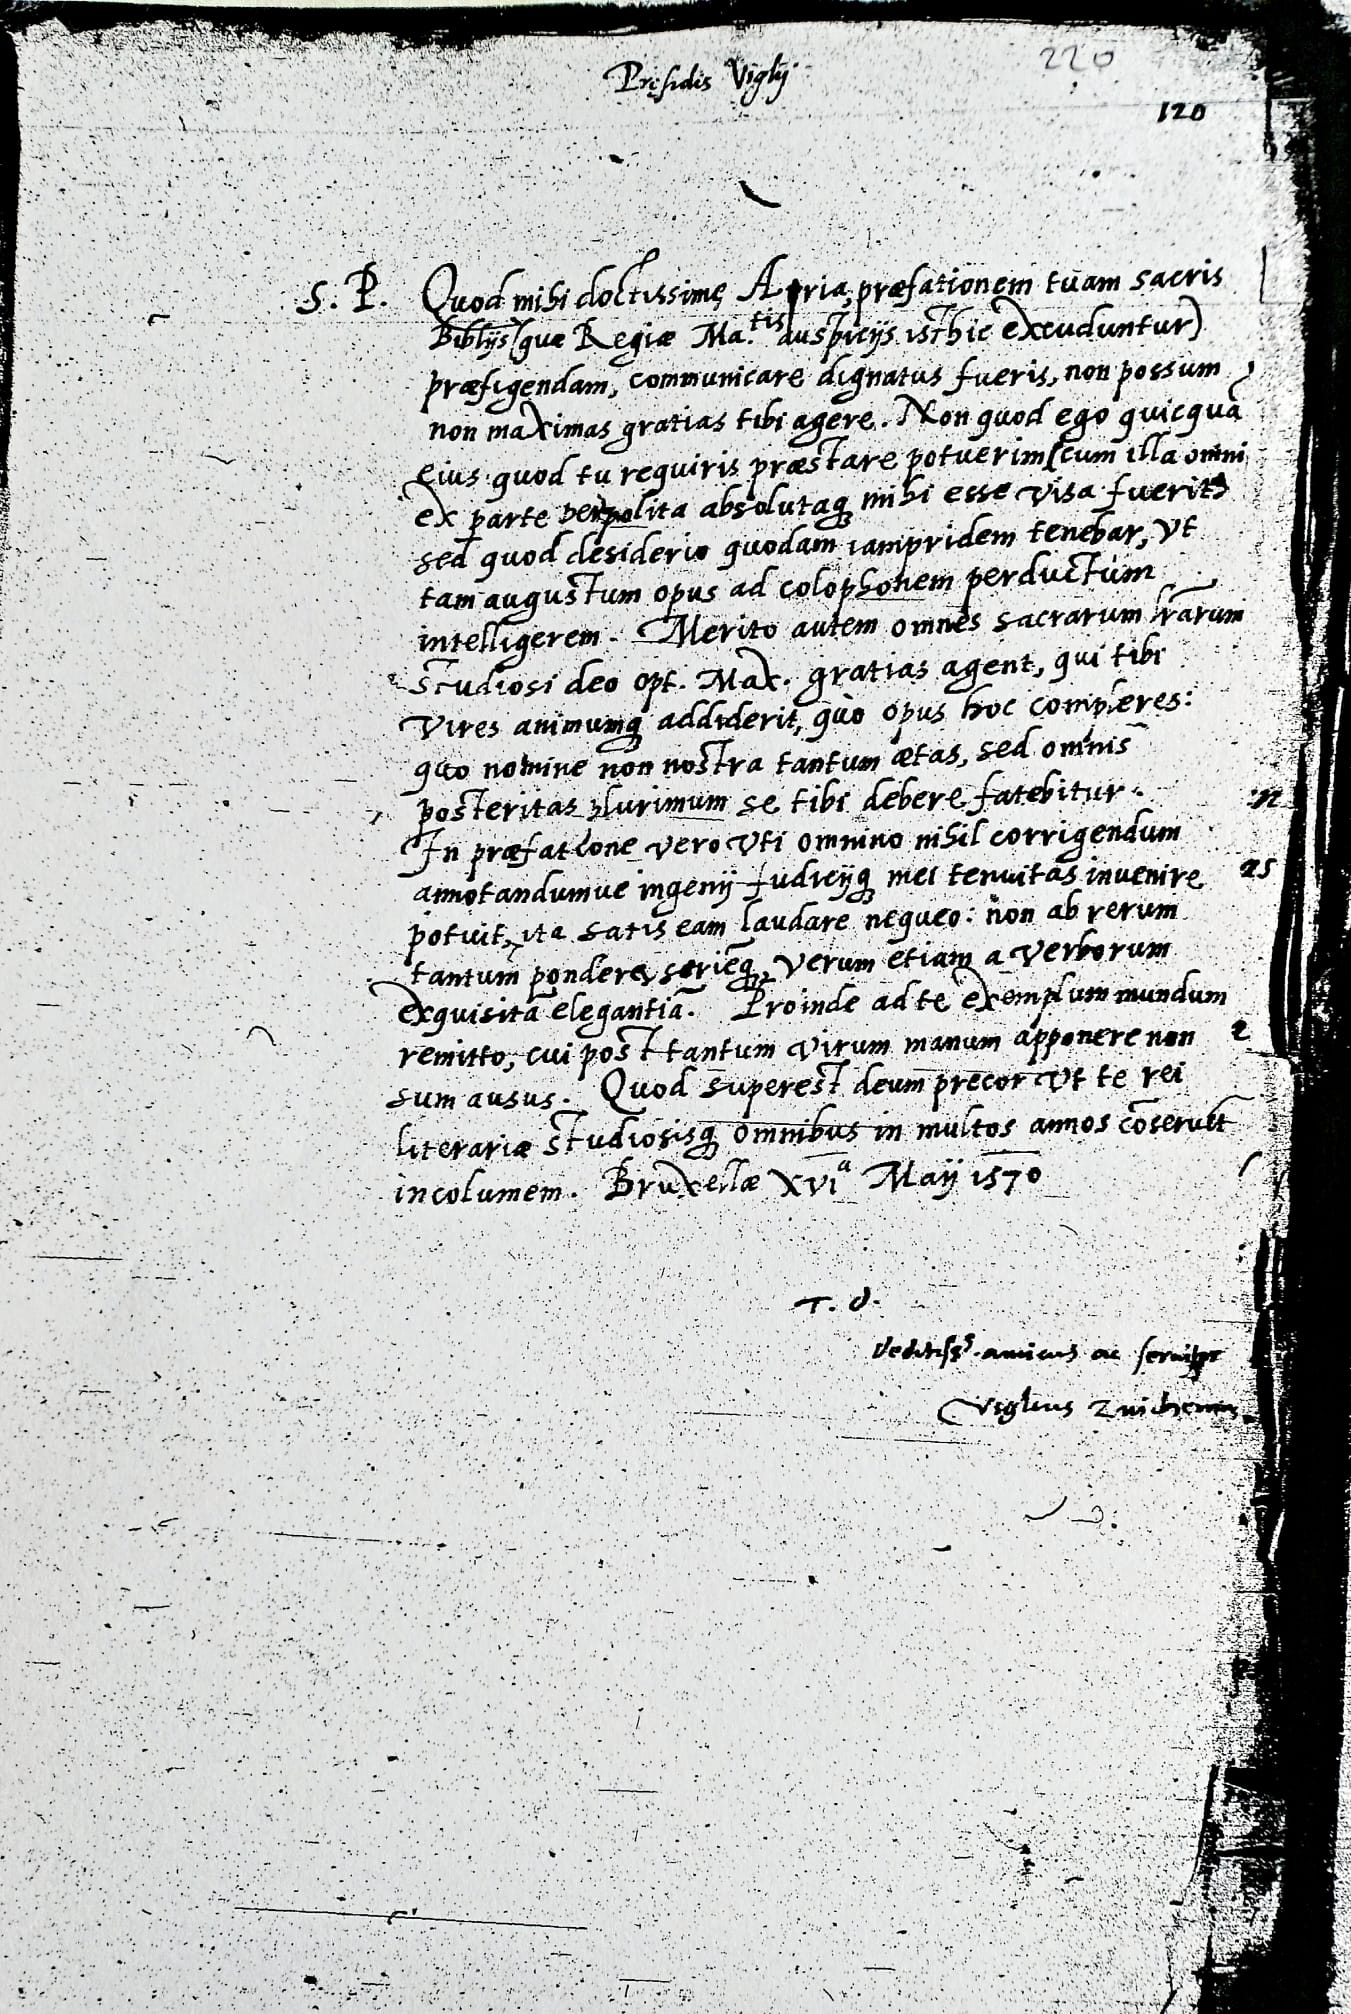 Pręsidis Viglij
220
120
S. P. Quod mihi doctissimę Aria, præfationem tuam sacris
Biblijs (quæ Regiæ Ma.tis auspicijs isthic excuduntur)
præfigendam, communicare dignatus fueris, non possum
non maximas gratias tibi agere. Non quod ego quicquã
eius quod tu requiris præstare potuerim (cum illa omni
ex parte perpolita absolutaq; mihi esse visa fuerit)
sed quod desiderio quodam iampridem tenebar, vt
tam augustum opus ad colophonem perductum
intelligerem. Merito autem omnes sacrarum lr̃arum
studiosi deo opt. Max. gratias agent, qui tibi
vires animumq; addiderit, quo opus hoc compleres:
quo nomine non nostra tantum ætas, sed omnis
posteritas plurimum se tibi debere fatebitur.
In præfatione vero vti omnino nihil corrigendum
annotandumue ingenij Iudicijq; mei tenuitas inuenire
potuit, ita satis eam laudare nequeo: non ab rerum
tantum pondere, serieq;, verum etiam a verborum
exquisitã elegantiã. Proinde ad te exemplum mundum
remitto, cui post tantum virum manum apponere non
sum ausus. Quod superest deum precor vt te rei
literariæ studiosisq; omnibus in multos annos cõseruet
incolumem. Bruxellæ XVIa Maij 1570
T. d.
deditiss.s amicus ac
Viglius Zuichemus